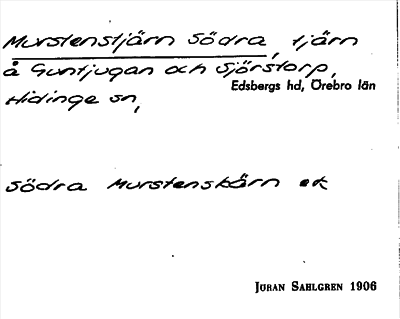 Murstenstjärn Södra, tjärn
å Guntjugan och Sjörstorp,
Edsbergs hd, Örebro län
Hidinge sn,
Södra Murstenskärn ek
JÖRAN SAHLGREN 1906